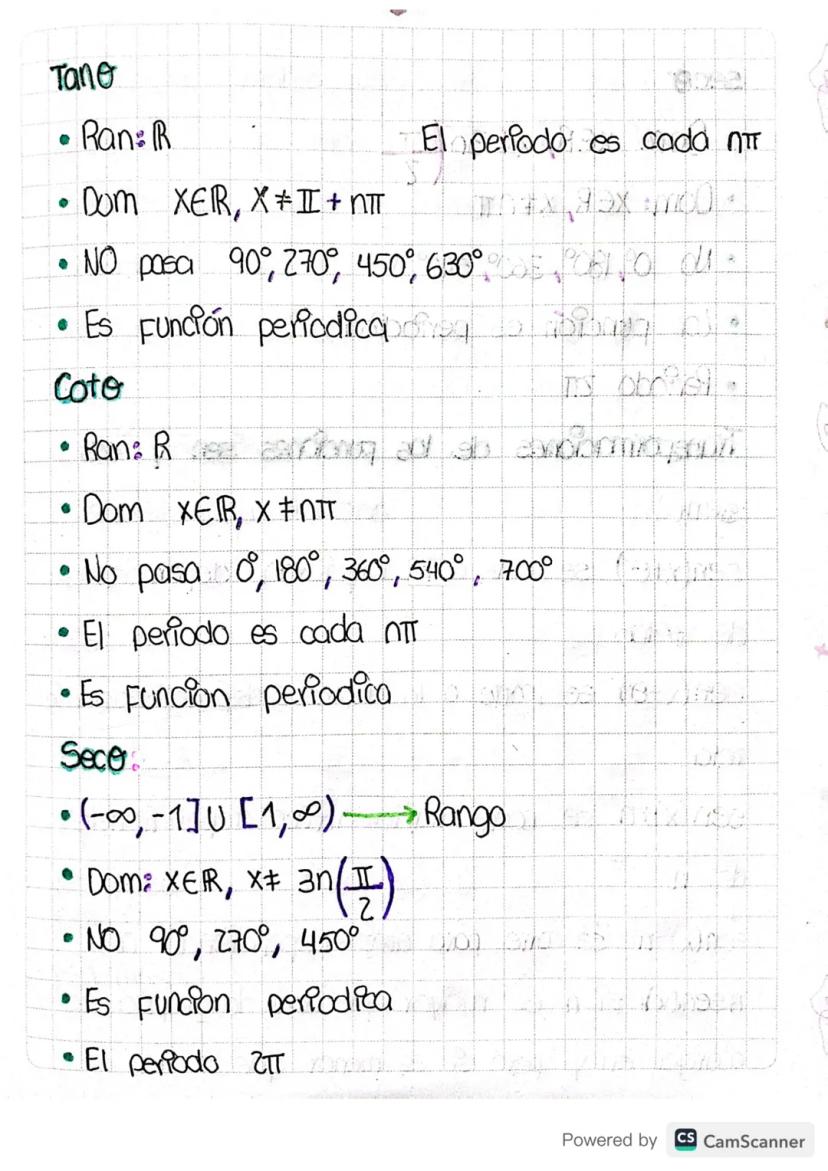 Tanθ
• Ran: ℝ
El periodo es cada nπ
• Dom X∈ℝ, X≠π+nπ
• NO pasa 90°, 270°, 450°, 630°
• Es Función periodica
Cotθ
• Ran: ℝ
• Dom x∈ℝ, x≠nπ
• No pasa 0°, 180°, 360°, 540°, 700°
• El periodo es cada nπ
• Es Funcion periodica
Secθ:
• (-∞, -1] ∪ [1, ∞) → Rango
• Dom: x∈ℝ, x≠ 3n(π/2)
• NO 90°, 270°, 450°
• Es Funcion periodica
• El periodo 2π
Powered by CS CamScanner